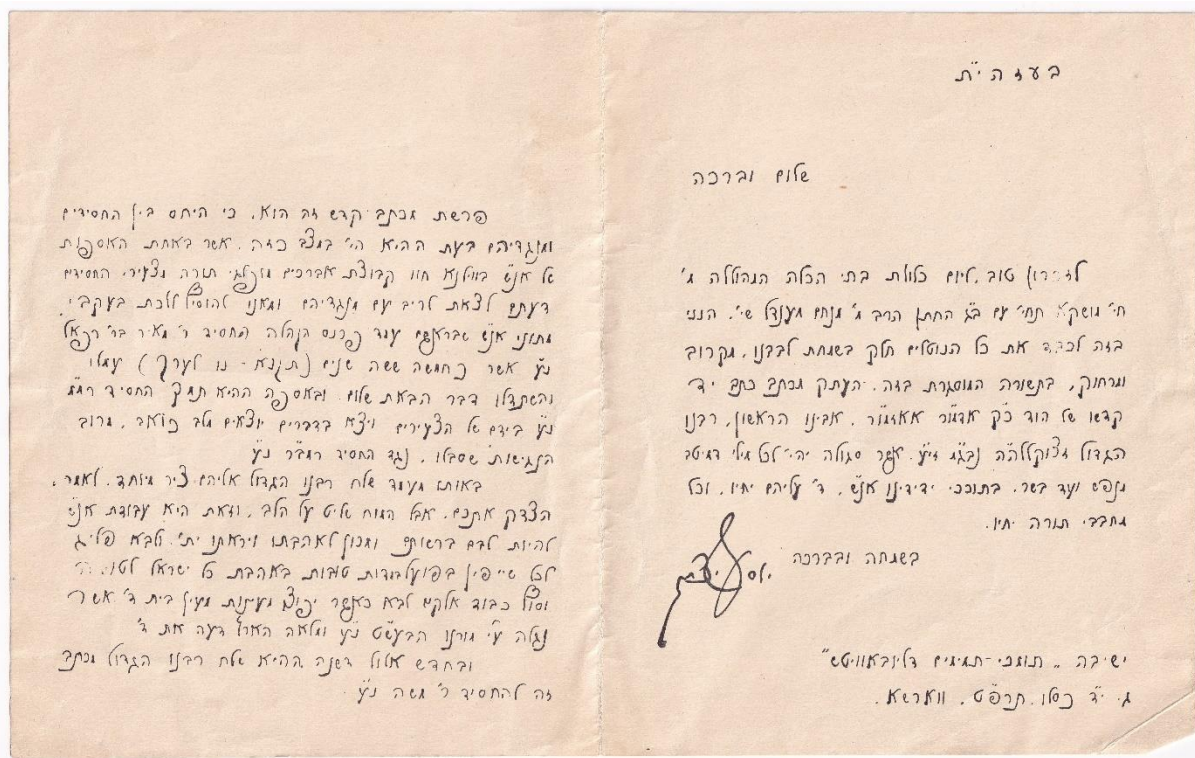 בעזהי"ת
שלום וברכה
לזכרון טוב, ליום כלולת בתי הכלה המהוללה מ'
חי' מושקא תחי' עם ב"ג החתן הרב מ' מנחם מענדל שי', הנני
בזה לכבד את כל הנוטלים חלק בשמחת לבבנו, מקרוב
ומרחוק, בתשורה המוסגרת בזה, העתק מכתב כתב יד
קדשו של הוד כ"ק אדמו"ר אאזמו"ר, אבינו הראשון, רבנו
הגדול מצוקללה"ה נבג"מ זי"ע, אשר סגולה יהי' לכל מילי דמיטב
מנפש ועד בשר, בתוככי ידידינו אנ"ש, ד' עליהם יחיו, וכל
מחבבי תורה יחיו.
בשמחה ובברכה
יוסף יצחק
ישיבה ,,תומכי-תמימים דליובאוויטש"
ג. י"ד כסלו, תרפ"ט, ווארשא.
פרשת מכתב קדש זה הוא, כי היחס בין החסידים
ומנגדיהם בעת ההיא הי' במצב כזה, אשר באחת האספות
של אנ"ש בווילנא חוו קבוצת אברכים מופלגי תורה מצעירי החסידים
דעתם לצאת לריב עם מנגדיהם ומאנו להוסיף ללכת בעקבי
מתוני אנ"ש שבראשם עמד פרנס הקהלה החסיד ר' מאיר בר' רפאל
נ"ע אשר כחמשה ששה שנים (תקנ"א - נו לערך) עמלו
והשתדלו דבר הבאת שלום. ובאספה ההיא תמך החסיד רמ"מ
נ"ע בידם של הצעירים ויצא בדברים יוצאים מלב כואב, מרוב
הנגישות שסבלו, נגד החסיד רמב"ר נ"ע
באותו מעמד שלח רבנו הגדול אליהם ציר מיוחד, לאמר,
הצדק אתכם, אבל המוח שליט על הלב, וזאת היא עבודת אנ"ש
להיות לבם ברשותם ומכוון לאהבתו ויראתו ית', ולבא פליג
לכל שייפין בפועל במדות טובות באהבת כל ישראל לטוב לי'
וסוף כבוד אלקים לבא כאשר יפוצו מעינות מעין בית ד' אשר
נגלה ע"י מורנו הבעש"ט נ"ע ומלאה הארץ דעה את ד'
ובחדש אלול דשנה ההיא שלח רבנו הגדול מכתב
זה להחסיד ר' משה נ"ע.